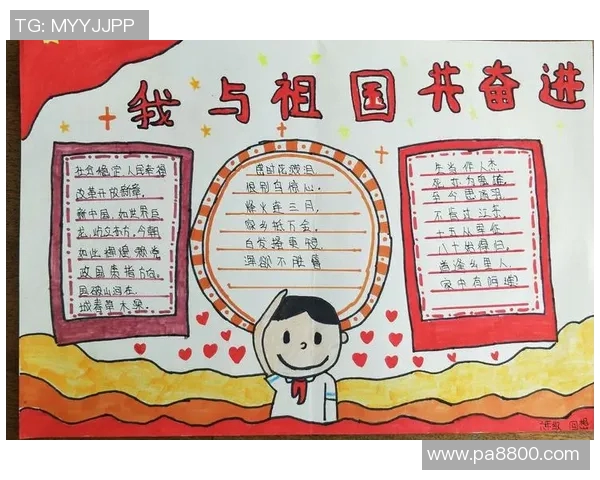 TG: MYYJJPP
我与祖国共奋进
社会稳定 人民幸福
改革开放新章,
新中国,如世界巨
龙,屹立东方,今朝
国破山河在
城春草木深.
感时花溅泪
恨别鸟惊心.
烽火连三月,
家乡抵万金.
白发搔更短
浑欲不胜簪
生当作人杰
死亦为鬼雄,
至今思项羽
不肯过江东.
十五从军征
八十始得归,
道逢乡里人
家中有阿谁
www.pa8800.com